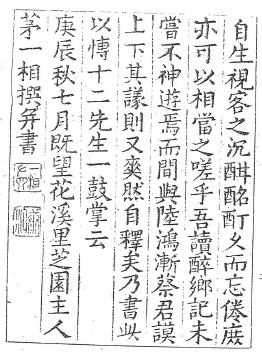 自生視客之沉酣酩酊久而忘倦庶
亦可以相當之嗟乎吾讀醉鄉記未
嘗不神遊焉而間與陸鴻漸蔡君謨
上下其議則又爽然自釋矣乃書此
以愽十二先生一鼓掌云
庚辰秋七月既望花溪里芝園主人
茅一相撰并書